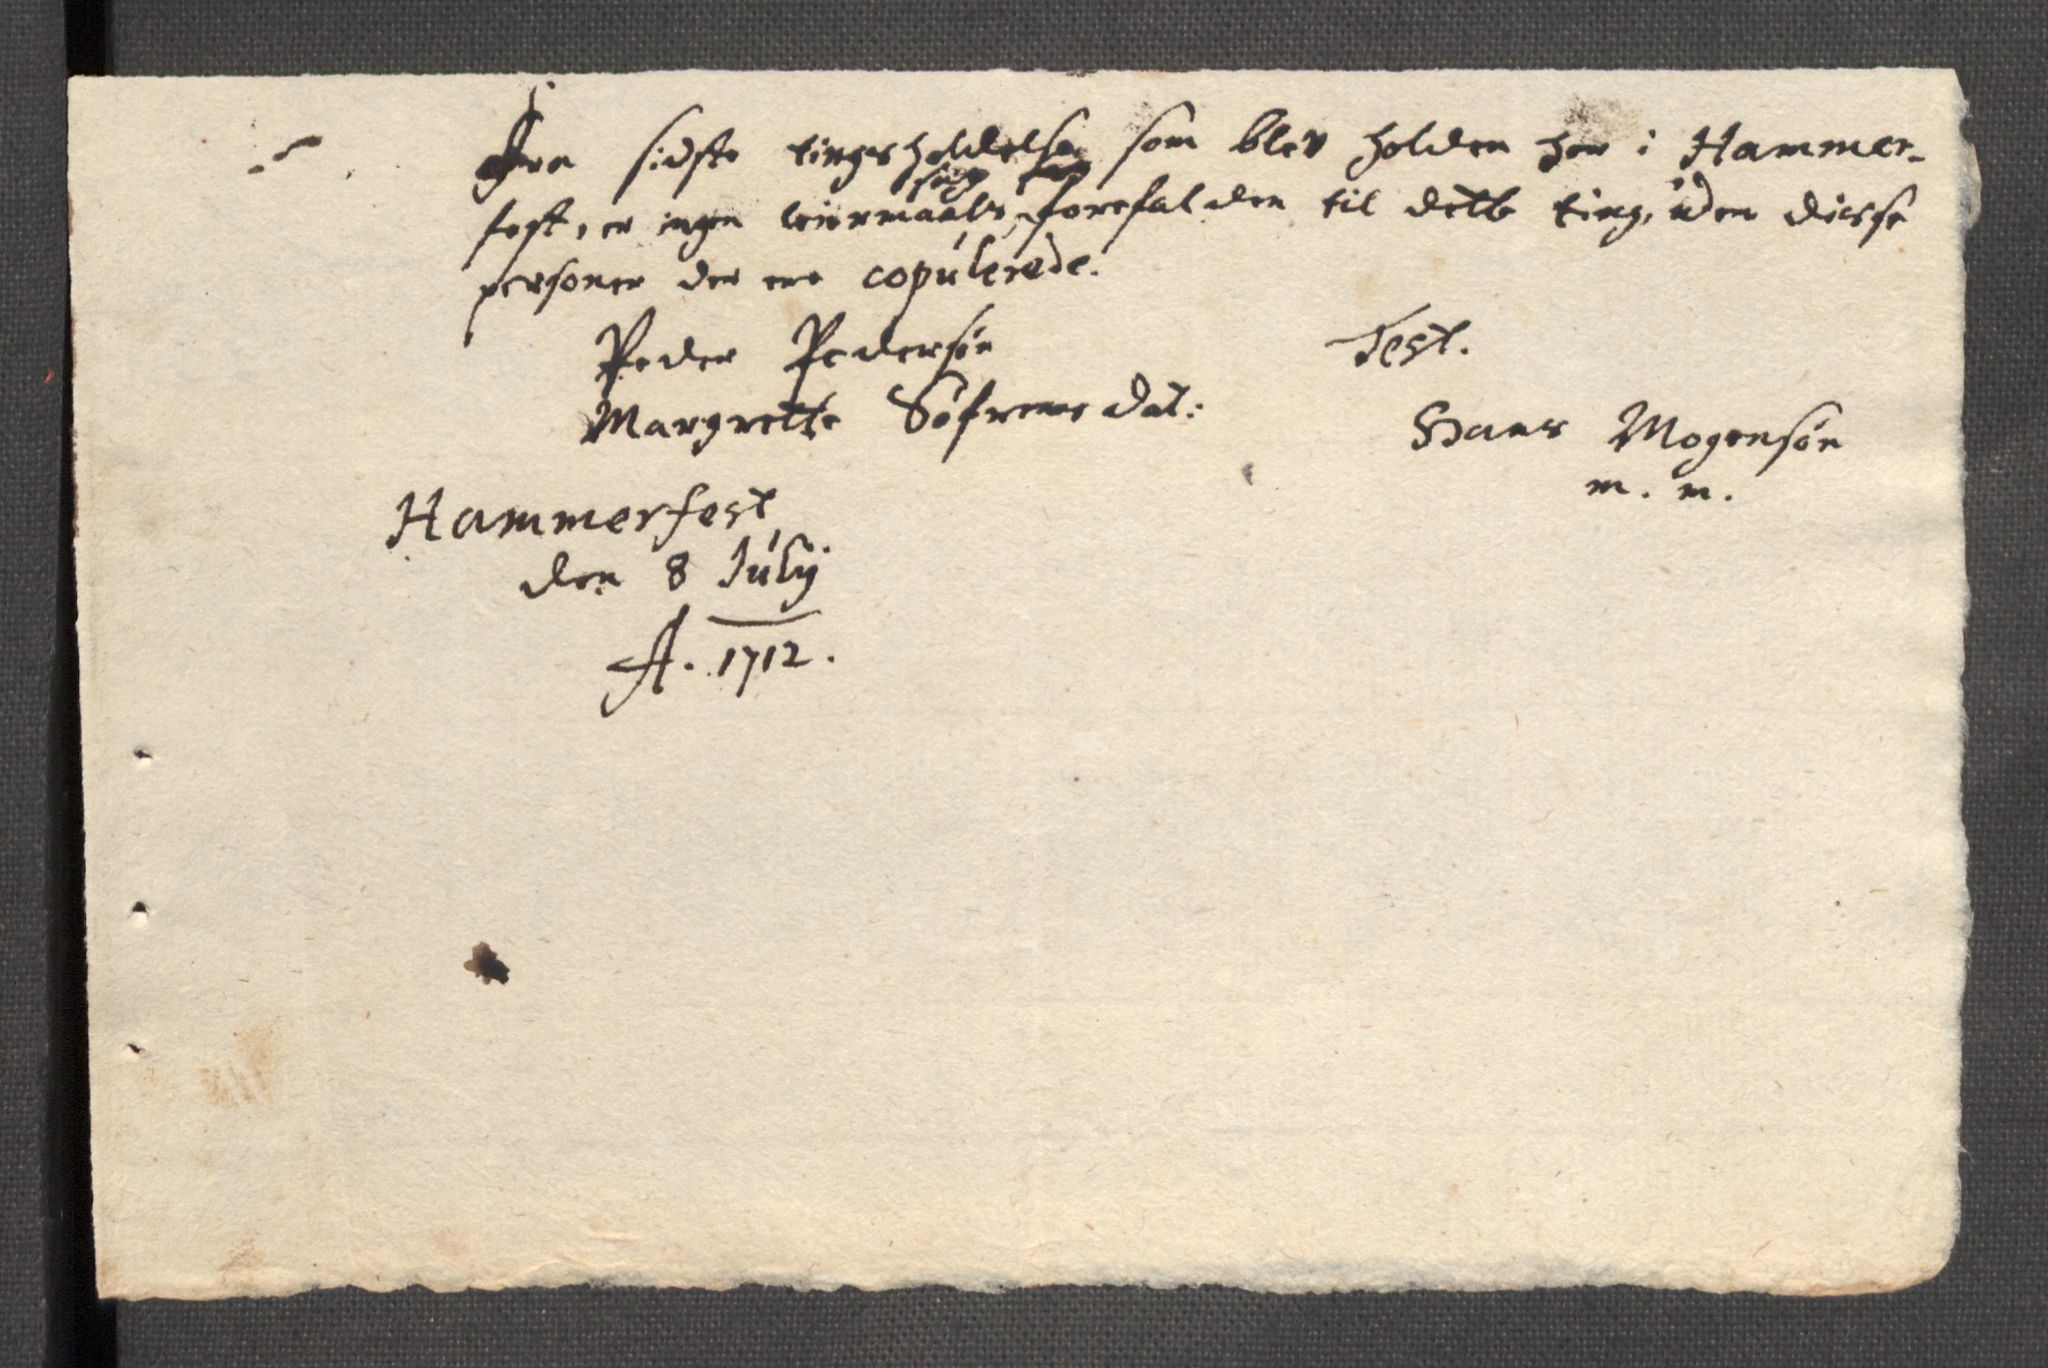 Fra sidste tings holdelse som blev holden her i Hammer-
fest, er ingen leiermaals sag forefalden til dette ting, uden disse
personer der ere copúlerede.
Peder Pedersøn
Test.
Margrette Søfrensdat:
Hans Mogensøn
m. m.
Hammerfest
den 8 Júlij
A. 1712.